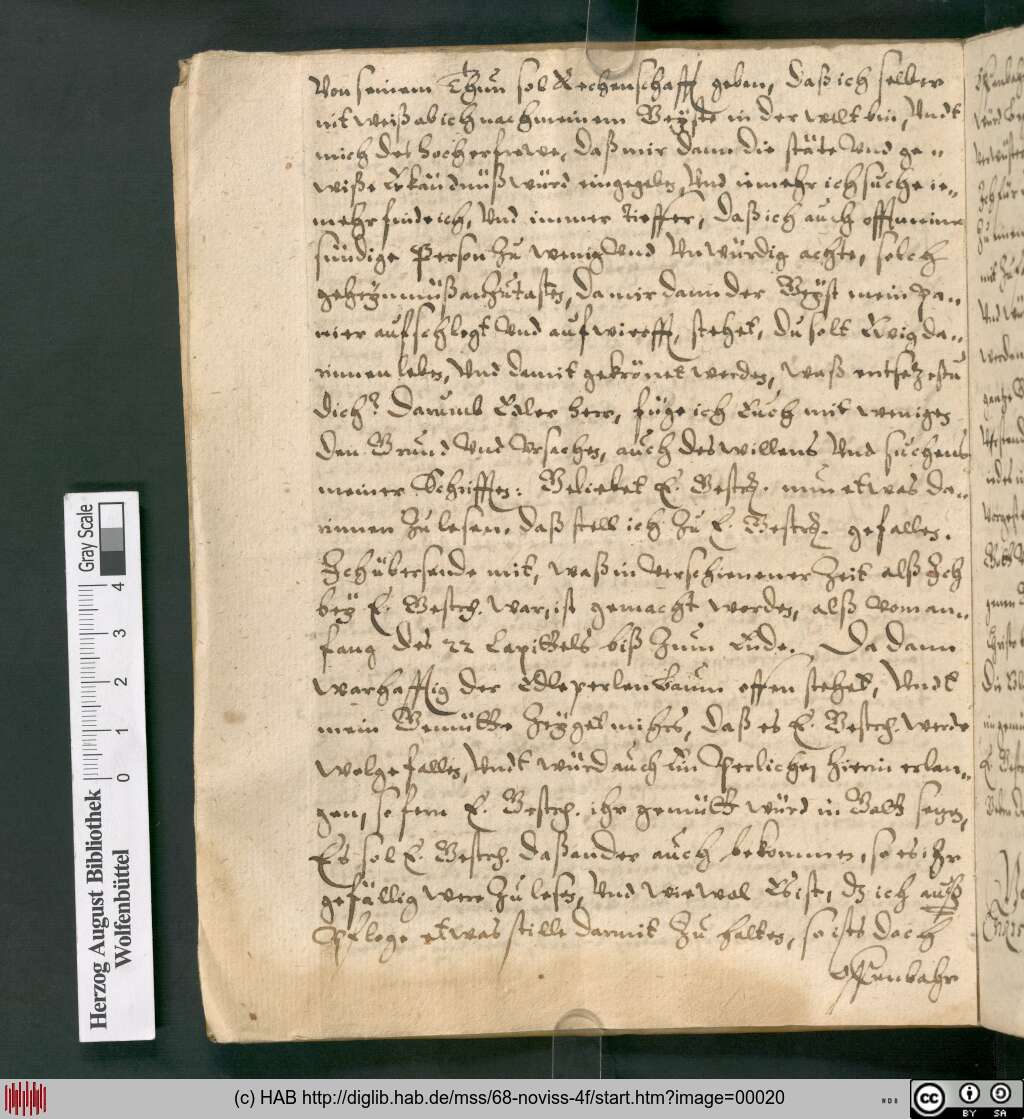 Von seinem Thun sol Rechenschafft geben, daß ich selber
nit weiß ob ich nach meinem Geyste in der welt bin, Undt
mich des hoch erfrewe, daß mir dann die stäte Und ge-
wiße Erkäudnüß würd eingegeben, Und iemehr ich suche ie-
mehr finde ich, Und immer tieffer, daß ich auch offt meine
sündige Person zu wenig Und Unwürdig achte, solch
geheymnüß anzutasten, da mir dann der Geyst mein pa-
nier aufschlegt Und aufwirfft, stehet, du solt Ewig da-
rinnen leben, Und damit gekrönet werden, waß entsetzestu
dich? Darumb Edler herr, füge ich Euch mit wenigen
den Grund Und Ursachen, auch des willens Und suchens
meiner Schrifften: Beliebet E. Gestr. nun etwas da-
rinnen zu lesen, daß stell ich zu E. Gestr. gefallen.
Ich übersende mit, waß in Verschienener Zeit alß Ich
bey E. Gestr. war, ist gemacht worden, alß Vom an-
fang des 22 Capittels biß zum Ende. Da dann
warhafftig der Edle perlen baum offen stehet, Undt
mein Gemütte zeyget mihrs, daß es E. Gestr. werde
wolgefallen, Undt würd auch Ein Perlichen hierin erlan-
gen, so fern E. Gestr. ihr gemütt würd in Gott setzen,
Es sol E. Gestr. daß ander auch bekommen, so es ihr
gefällig were zu lesen, Und wiewol Es ist, dz ich
Pflege etwas stille darmit zu halten, so ists doch
offenbahr
Herzog August Bibliothek
Wolfenbüttel
Gray Scale
0 1 2 3 4
(c) HAB http://diglib.hab.de/mss/68-noviss-4f/start.htm?image=00020
WDB
cc BY SA